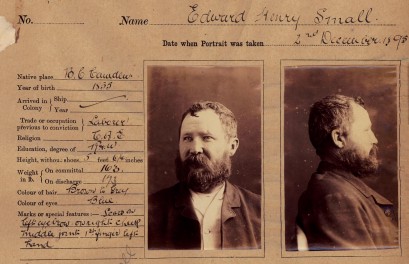 No. Name Edward Henry Small.
Date when Portrait was taken 2nd December 1895
Native place B. C Camden
Year of birth
Arrived in Colony { Ship
Year
Trade or occupation previous to conviction } Laborer
Religion C of E
Education, degree of R & W
Height, without shoes, 5 feet inches
Weight in lb. { On committal
On discharge
Colour of hair Brown to Grey
Colour of eyes Blue
Marks or special features:— Scar on
left eyebrow on right cheek
middle joint 1st finger left
hand